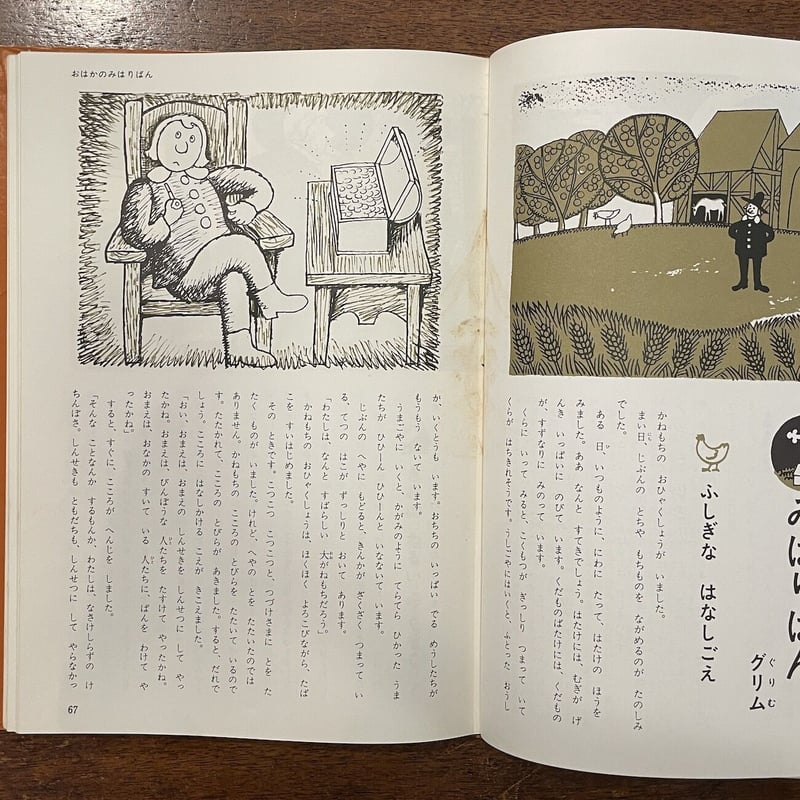 みはりばん
グリム
ぐりむ
ふしぎな はなしごえ
かねもちの おひゃくしょうが いました。
まい日、じぶんの とちや もちものを ながめるのが たのしみ
でした。
ある 日、いつものように、にわに たって、はたけの ほうを
みました。ああ なんと すてきでしょう。はたけには、むぎが げ
んき いっぱいに のびて います。くだものばたけには、くだもの
が、すずなりに みのって います。
くらに いって みると、こくもつが ぎっしり つまって いて
くらが はちきれそうです。うしごやにはいくと、ふとった おうし
おはかのみはりばん
が、いくとうも います。おちちの いっぱい でる めうしたちが
もうもう ないて います。
うまごやに いくと、かがみのように てらてら ひかった うま
たちが ひひーん ひひーんと いなないて います。
じぶんの へやに もどると、きんかが ざくざく つまって い
る、てつの はこが ずっしりと おいて あります。
「わたしは、なんと すばらしい 大がねもちだろう」
かねもちの おひゃくしょうは、ほくほく よろこびながら、たば
こを すいはじめました。
その ときです。こつこつ こつこつと、つづけさまに とを た
たく ものが いました。けれど、へやの とを たたいたのでは
ありません。かねもちの こころの とびらを たたいて いるので
す。たたかれて、こころの とびらが あきました。すると、だれで
しょう。こころに はなしかける こえが きこえました。
「おい、おまえは、おまえの しんせきを しんせつに して やっ
たかね。おまえは、びんぼうな 人たちを たすけて やったかね。
おまえは、おなかの すいて いる 人たちに、ぱんを わけて や
ったかね」
すると、すぐに、こころが へんじを しました。
「そんな ことなんか するもんか、わたしは、なさけしらずの け
ちんぼさ。しんせきも ともだちも、しんせつに して やらなかっ
67